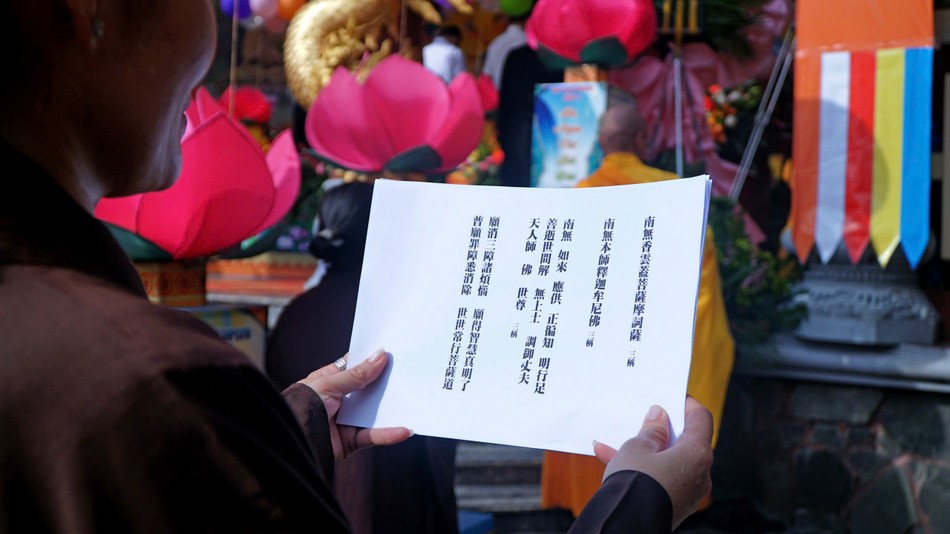 南無香雲蓋菩薩摩訶薩 三稱
南無本師釋迦牟尼佛 三稱
南無 如來 應供 正偏知 明行足
善逝世間解 無上士 調御丈夫
天人師 佛 世尊 三稱
願消三障諸煩惱 願得智慧真明了
普願罪障悉消除 世世常行菩薩道